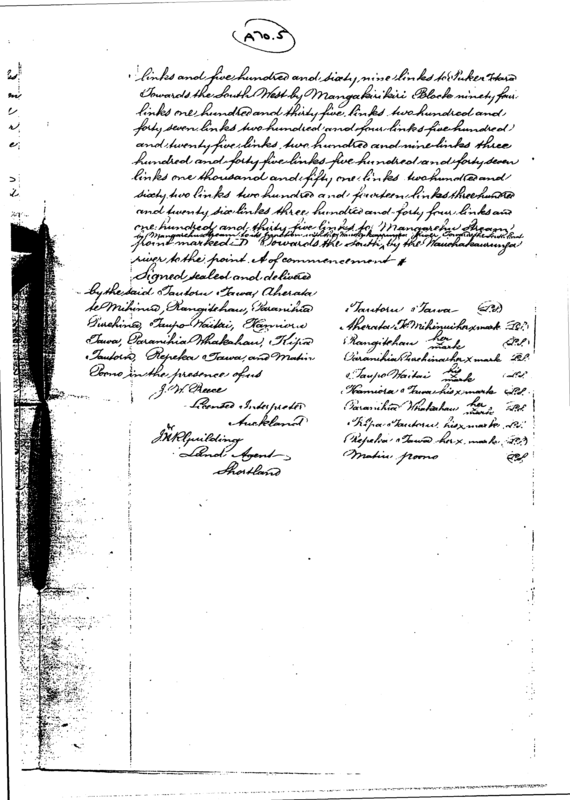 A70.5
links and five hundred and sixty nine links to Puke
Towards the South West by Mangakirikiri Block ninety four
links one hundred and thirty five links two hundred and
forty seven links two hundred and four links five hundred
and twenty five links two hundred and nine links three
hundred and forty five links five hundred and forty seven
links one thousand and fifty one links two hundred and
sixty two links two hundred and fourteen links three hundred
and twenty six links three hundred and forty four links and
one hundred and thirty five links to Mangarehu Stream
by Mangarehu Stream to its junction with the Waiwhakaurunga River
point marked D Towards the South by the Wauhakaurunga
river to the point A of commencement
Signed sealed and delivered
by the said Tautoru Tawa, Aherata
te Mihinui, Rangitehau, Paranihia
Turehina, Taupo Waitai, Hamiora
Tawa, Paranihia Whakahau, Tripa
Tautoru, Repeka Tawa, and Matiu
Poono in the presence of us
J. W. Preece
Licensed Interpreter
Auckland
Guilding
Land Agent
Shortland
Tautoru Tawa L.S.
Aherata Te Mihinui her x mark L.S.
Rangitehau her mark L.S.
Paranihia Turehina her x mark L.S.
Taupo Waitai his mark
Hamiora Tawa his x mark L.S.
Paranihia Whakahau her mark L.S.
Tripa Tautoru his x mark L.S.
Repeka Tawa her x mark L.S.
Matiu poono L.S.